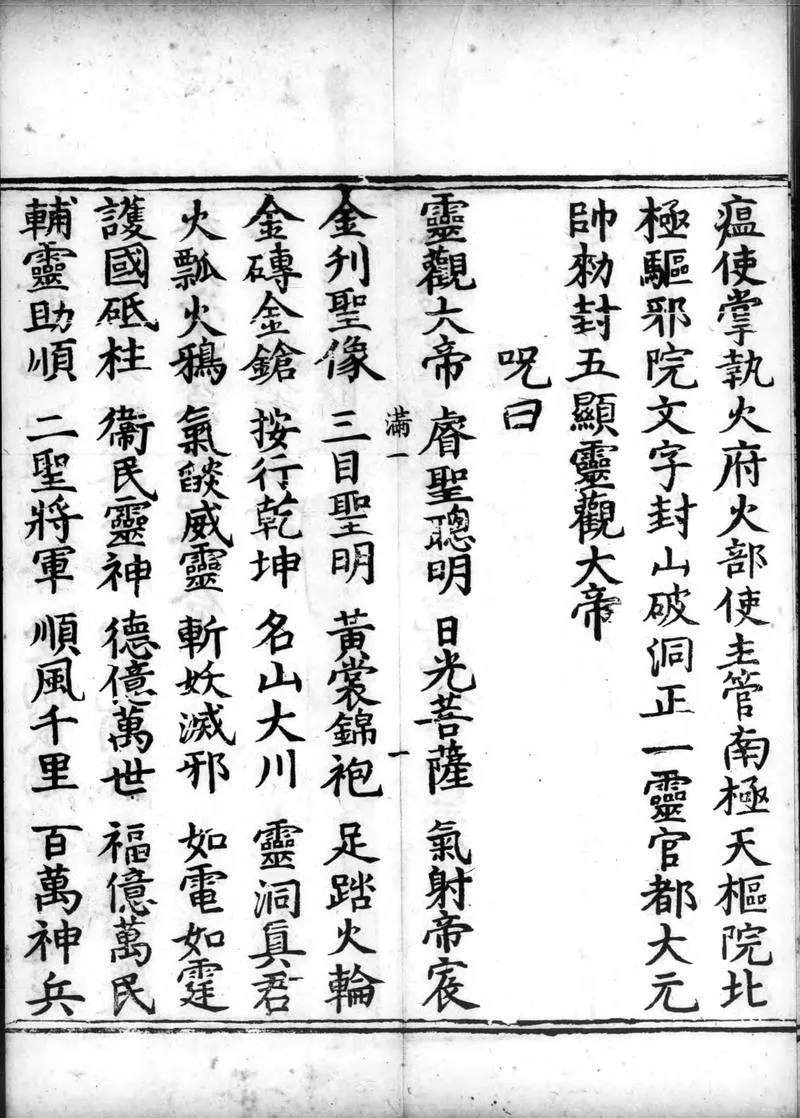 瘟使掌執火府火部使主管南極天樞院北
極驅邪院文字封山破洞正一靈官都大元
帥勑封五顯靈觀大帝
呪曰
靈觀大帝 睿聖聰明 日光菩薩 氣射帝宸
滿一 一
金刋聖像 三目聖明 黃裳錦袍 足踏火輪
金磚金鎗 按行乾坤 名山大川 靈洞真君
火瓢火鴉 氣燄威靈 斬妖滅邪 如電如霆
護國砥柱 衞民靈神 德億萬世 福億萬民
輔靈助順 二聖將軍 順風千里 百萬神兵